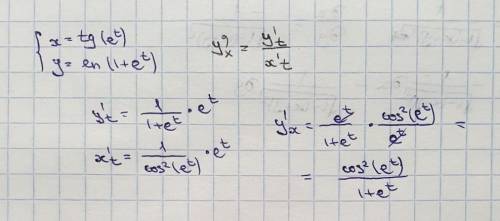 { x = tg(e^t)
y = ln(1+e^t)
y'x = y't / x't
y't = 1/(1+e^t) · e^t
x't = 1/cos²(e^t) · e^t
y'x = e^t/(1+e^t) · cos²(e^t)/e^t =
= cos²(e^t)/(1+e^t)